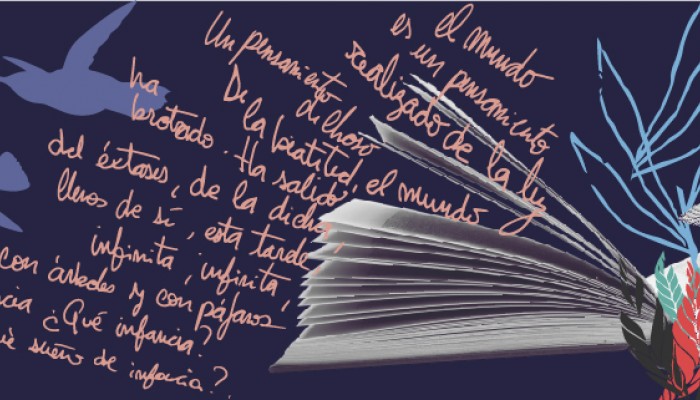 el mundo
es un pensamiento
realizado de la luz
Un pensamiento
dichoso
De la beatitud, el mundo
ha
brotado. Ha salido
del éxtasis, de la dicha,
llenos de sí, esta tarde,
infinita, infinita,
con árboles y con pájaros
¿Qué infancia?
sueño de infancia?